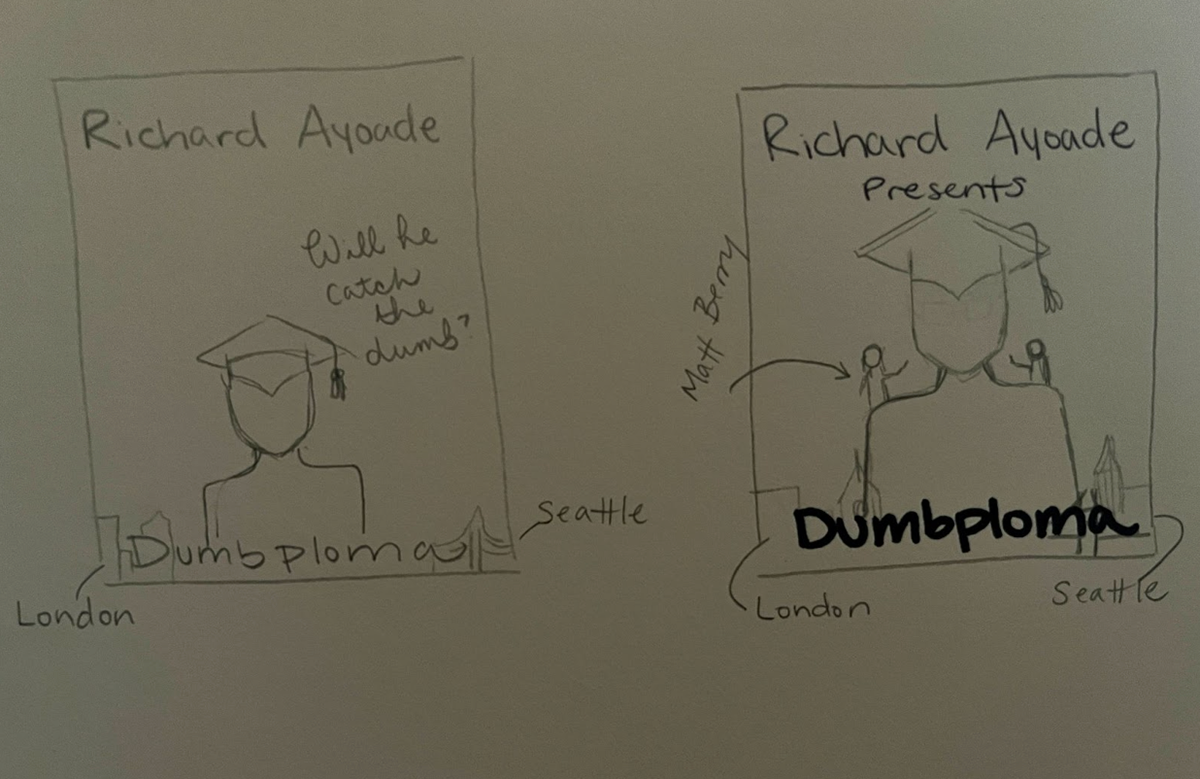 Richard Ayoade
Will he
catch
the
dumb?
Dumbploma
London
Seattle
Richard Ayoade
Presents
Matt Berry
Dumbploma
London
Seattle